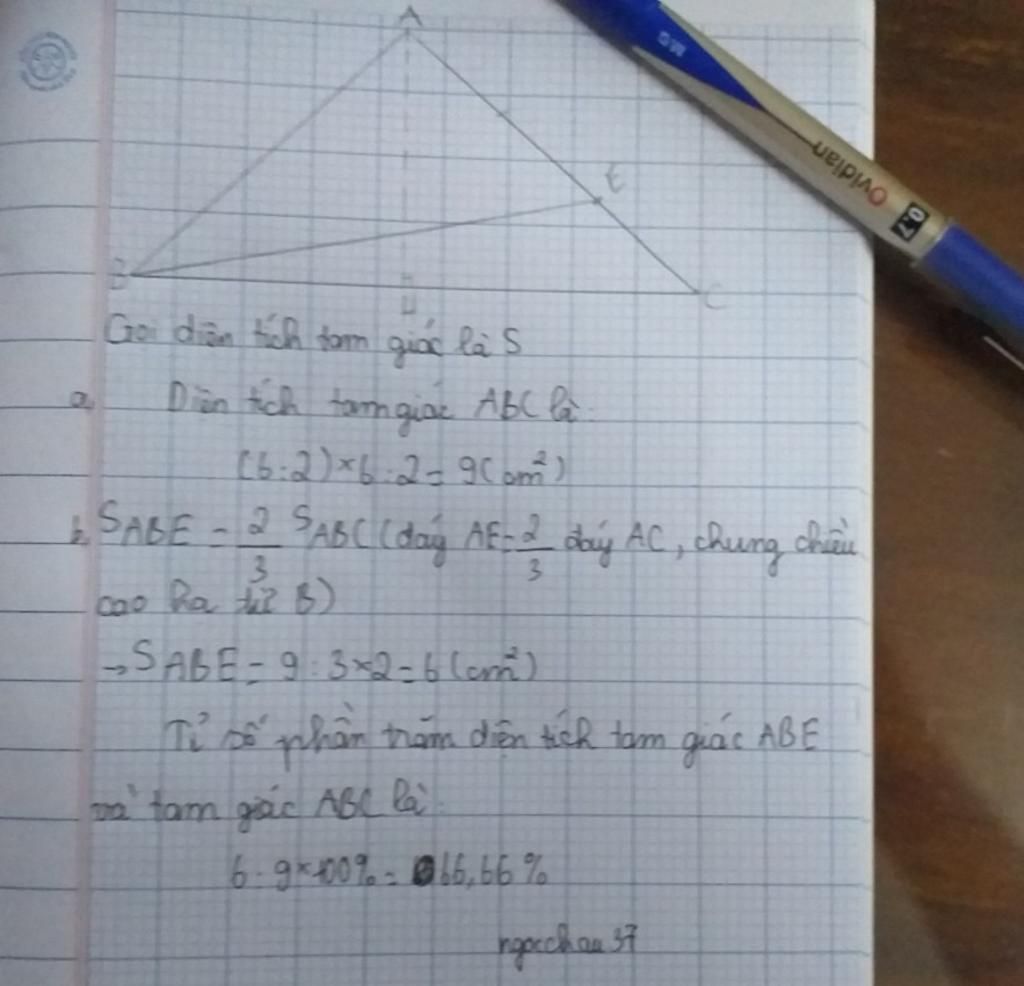 A
MG
Ovidian
0.7
E
B
H
C
Gọi diện tích tam giác là S
a, Diện tích tam giác ABC là:
(6:2)×6:2=9(cm²)
b, SABE = 2/3 SABC (đáy AE = 2/3 đáy AC, chung chiều
cao hạ từ B)
→ SABE = 9:3×2=6(cm²)
Tỉ số phần trăm diện tích tam giác ABE
và tam giác ABC là:
6:9×100%=66,66%
ngocchau37